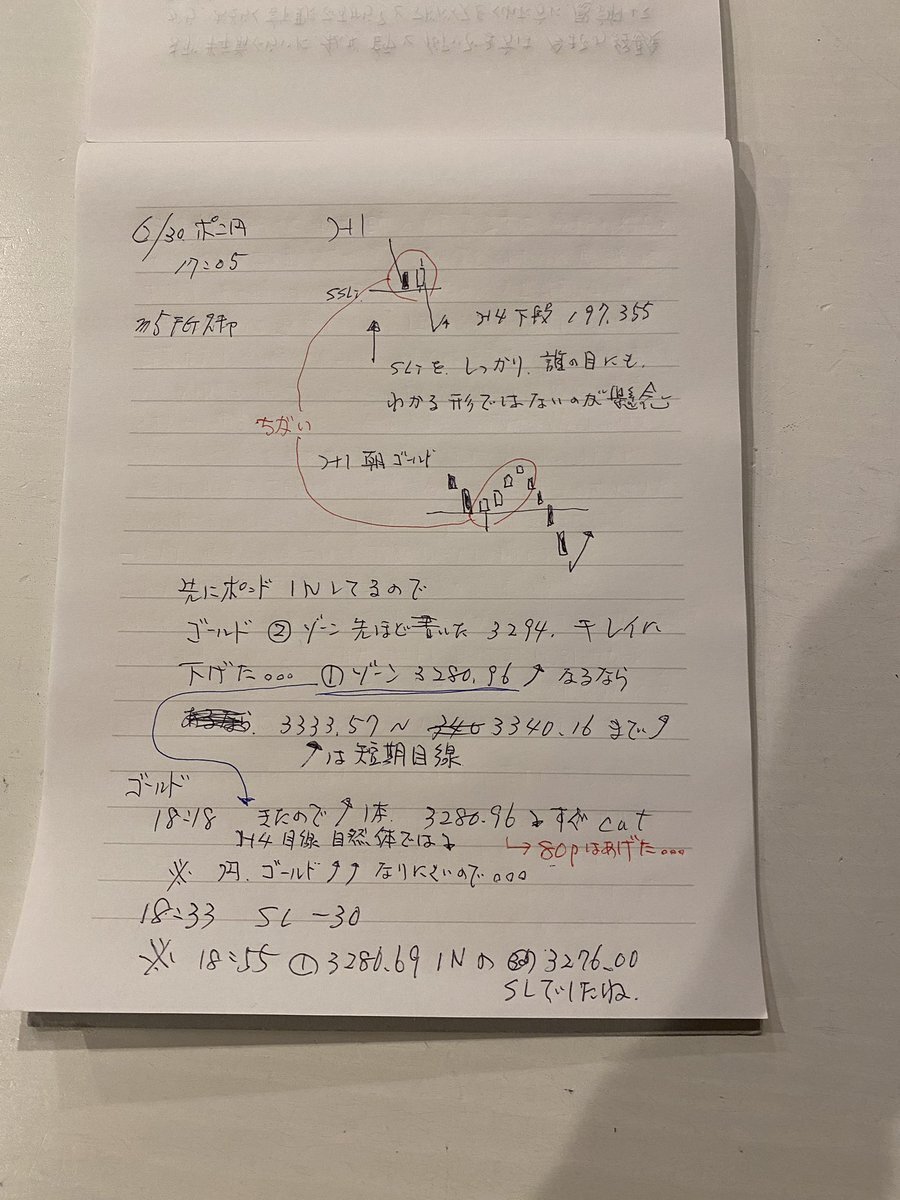 6/30 ポン円
17:05
H1
SSLで
m5 TGスキャ
H4 下段 197.355
SLTを、しっかり、誰の目にも、
わかる形ではないのが懸念
ちがい
H1 朝ゴールド
先にポンド INしてるので
ゴールド ② ゾーン 先ほど書いた 3294. キレイに
下げた。。。 ①ゾーン 3280.96 ↑ なるなら
3333.57 N 3340.16 まで↑
↑は短期目線
ゴールド
18:18 きたので ↑1本. 3280.96 すぐ cut
H4 目線 自然体では
→ 80pはあげた。。。
※ 円、ゴールド ↑↑ なりにくいので。。。
18:33 SL -30
※ 18:55 ① 3280.69 INの 3276.00
SLでしたね.